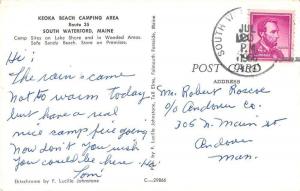 KEOKA BEACH CAMPING AREA
Route 35
SOUTH WATERFORD, MAINE
Camp Sites on Lake Shore and in Wooded Areas.
Safe Sandy Beach. Store on Premises.
Hi!
The rains came.
Not to warm today
but have a real
nice camp fire going
Now don't you wish
you could be here Ha.
Tom
Ektachrome by F. Lucille Johnstone
C—29866
SOUTH
JUL
P.M.
POST CARD
ADDRESS
Mr. Robert Roscoe
c/o Andover Co.
305 N. Main St
Andover
Mass.